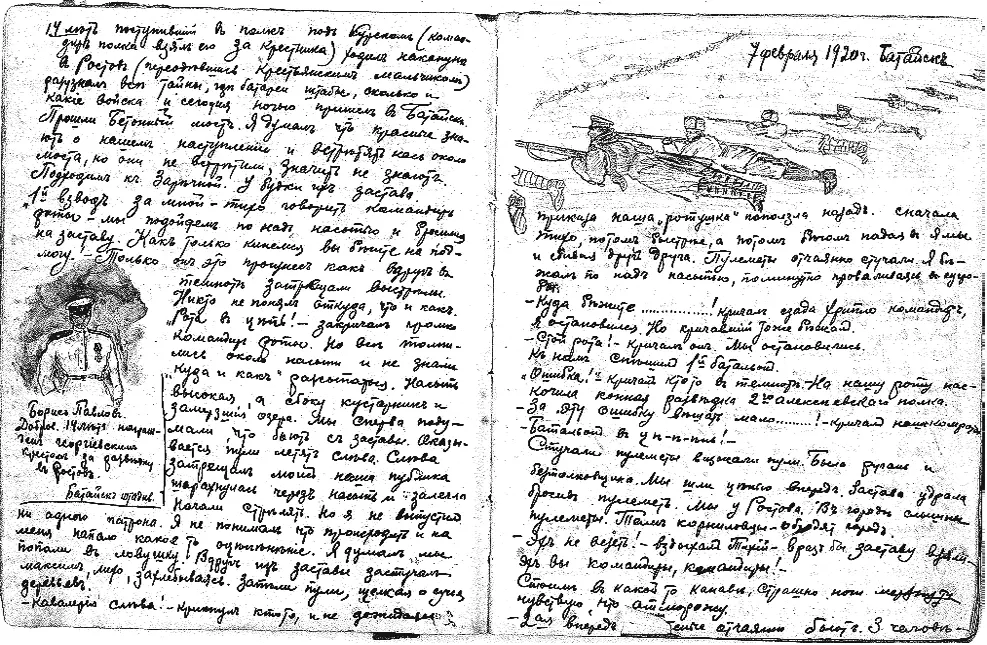 14 лѣтъ поступившій въ полкъ подъ Курскомъ (коман-
диръ полка взялъ его за крестника) ходилъ наканунѣ
въ Ростовъ (переодѣвшись крестьянскимъ мальчикомъ)
разузналъ всѣ тайны, гдѣ батареи штабы, сколько и
какіе войска и сегодня ночью пришелъ въ Батайскъ.
Прошли бетонный мостъ. Я думалъ что красные зна-
ютъ о нашемъ наступленіи и встрѣтятъ насъ около
моста, но они не встрѣтили, значитъ не знаютъ.
Подходимъ къ Зарѣчной. У будки ихъ застава.
"1й взводъ за мной – тихо говоритъ командиръ
роты – мы подойдемъ по надъ насыпью и бросимся
на заставу. Какъ только кинемся вы бѣгите на под-
могу. – Только онъ это произнесъ какъ вдругъ въ
темнотѣ затрещали выстрѣлы.
Никто не понялъ откуда, что и какъ.
"Рота въ цѣпь! – закричалъ громко
командиръ роты. Но всѣ толпи-
лись около насыпи и не знали
"куда и какъ" разсыпаться. Насыпь
высокая, а сбоку кустарникъ и
замерзшія озера. Мы сперва поду-
мали что бьютъ съ заставы. Оказы-
вается пули летятъ слѣва. Слѣва
затрещалъ наша публика
шарахнулась черезъ насыпь и залегла
Начали стрѣлять. Но я не выпустилъ
ни одного патрона. Я не понималъ что происходитъ и на
меня напало какое то оцѣпѣненіе. Я думалъ, мы
попали въ ловушку! Вдругъ изъ заставы застучалъ
максимъ, захлебываясь. Запѣли пули, щелкая о сучья
деревьевъ.
– Кавалерія слѣва! – крикнулъ кто то, и не дожидаясь
Борисъ Павловъ.
Добров. 14 лѣтъ награж-
денъ георгіевскимъ
крестомъ за развѣдку
въ Ростовѣ.
Батайскъ
7 февраля 1920 г. Батайскъ
приказа наша "ротушка" поползла назадъ. Сначала
тихо, потомъ быстрѣе, а потомъ бѣгомъ падая въ ямы
и сбивая другъ друга. Пулеметы отчаянно стучали. Я бѣ-
жалъ по надъ насыпью, поминутно проваливаясь въ сугро-
бы.
– Куда бѣжите ...............! кричалъ сзади хрипло командиръ,
я остановился. Но кричавшій тоже бѣжалъ.
– Стой рота! – кричалъ онъ. Мы остановились.
Къ намъ спѣшилъ 1й батальонъ.
"Ошибка!" – кричалъ кто то въ темнотѣ. На нашу роту нас-
кочила конная развѣдка 2го алексѣевскаго полка.
– За эту ошибку вѣшать мало.........! – кричалъ
– Батальонъ въ ц п-п-пь! –
Стучали пулеметы визжали пули. Было ругань и
безтолковщина. Мы шли цѣпью впередъ. Застава удрала
бросивъ пулеметъ. Мы у Ростова. Въ городѣ слышны
пулеметы. Тамъ корниловцы обходятъ городъ.
– Эхъ не везетъ! – вздыхалъ – вразъ бы заставу взяли
эхъ вы командиры, командиры! –
Стоимъ въ какой то канавѣ, страшно ноги мерзнутъ
чувствую что отморожу.
– впередъ отчаянно бьютъ. 3 человѣ-